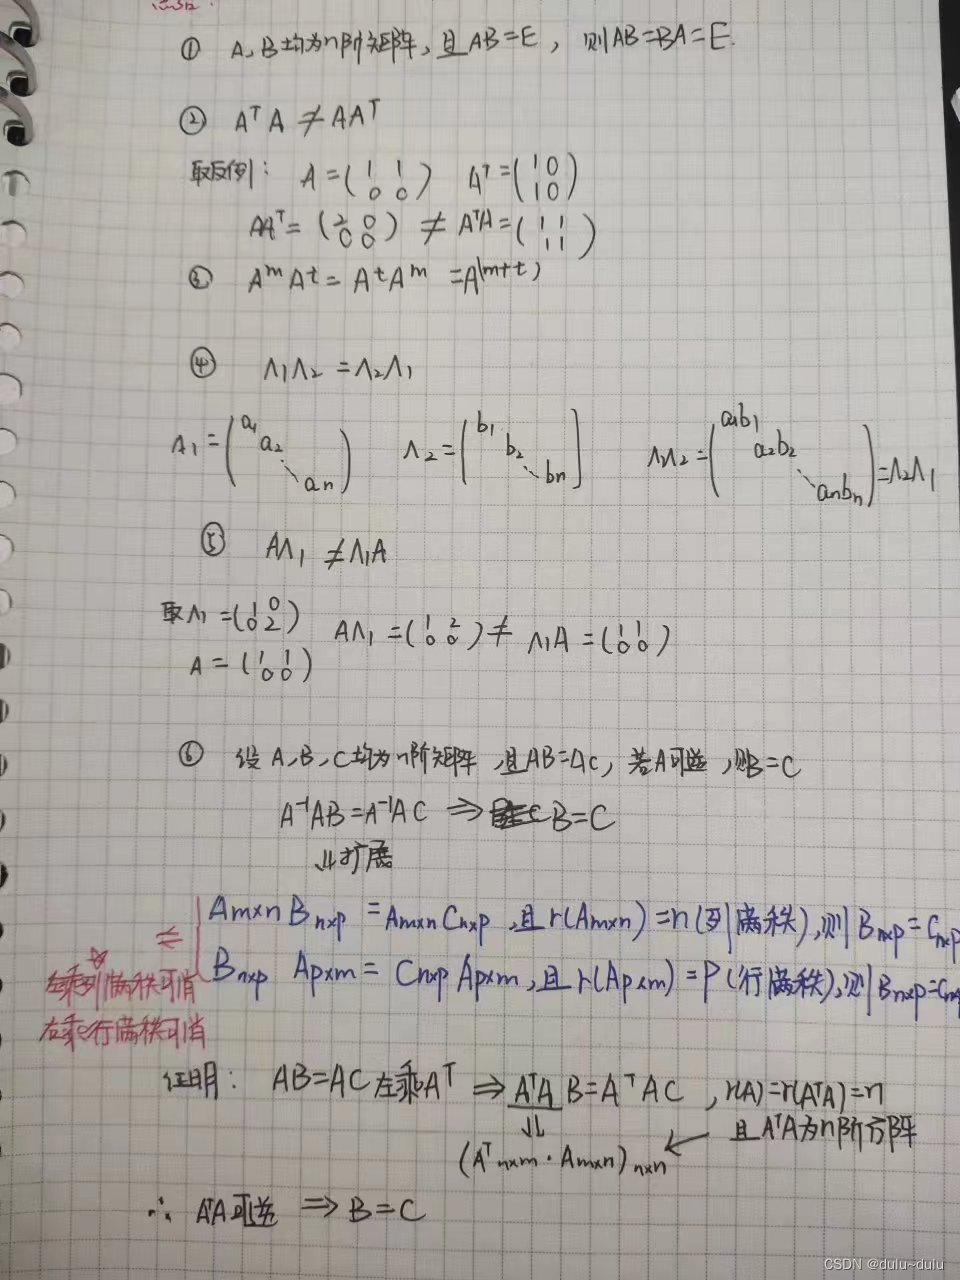 总结:
① A,B均为n阶矩阵,且AB=E, 则AB=BA=E.
② AᵀA ≠ AAᵀ
取反例: A=(1 1; 0 0) Aᵀ=(1 0; 1 0)
AAᵀ=(2 0; 0 0) ≠ AᵀA=(1 1; 1 1)
③ AᵐAᵗ=AᵗAᵐ=A^(m+t)
④ Λ₁Λ₂=Λ₂Λ₁
Λ₁=(a₁ a₂ ⋱ aₙ) Λ₂=[b₁ b₂ ⋱ bₙ] Λ₁Λ₂=(a₁b₁ a₂b₂ ⋱ aₙbₙ)=Λ₂Λ₁
⑤ AΛ₁ ≠ Λ₁A
取Λ₁=(1 0; 0 2) AΛ₁=(1 2; 0 0) ≠ Λ₁A=(1 1; 0 0)
A=(1 1; 0 0)
⑥ 设A,B,C均为n阶矩阵,且AB=AC,若A可逆,则B=C
A⁻¹AB=A⁻¹AC ⇒ B=C
⇓扩展
Am×n Bn×p = Am×n Cn×p,且r(Am×n)=n(列满秩),则Bn×p=Cn×p
Bn×p Ap×m = Cn×p Ap×m,且r(Ap×m)=P(行满秩),则Bn×p=Cn×p
左乘列满秩可消
右乘行满秩可消
证明: AB=AC左乘Aᵀ ⇒ AᵀAB=AᵀAC, r(A)=r(AᵀA)=n
且AᵀA为n阶方阵
(Aᵀn×m·Am×n)n×n
∴ AᵀA可逆 ⇒ B=C
CSDN @dulu~dulu